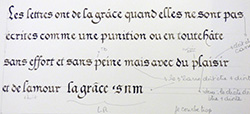 Les lettres ont de la grâce quand elles ne sont pas
écrites comme une punition ou en toute hâte
sans effort et sans peine mais avec du plaisir
et de l'amour la grâce s n m